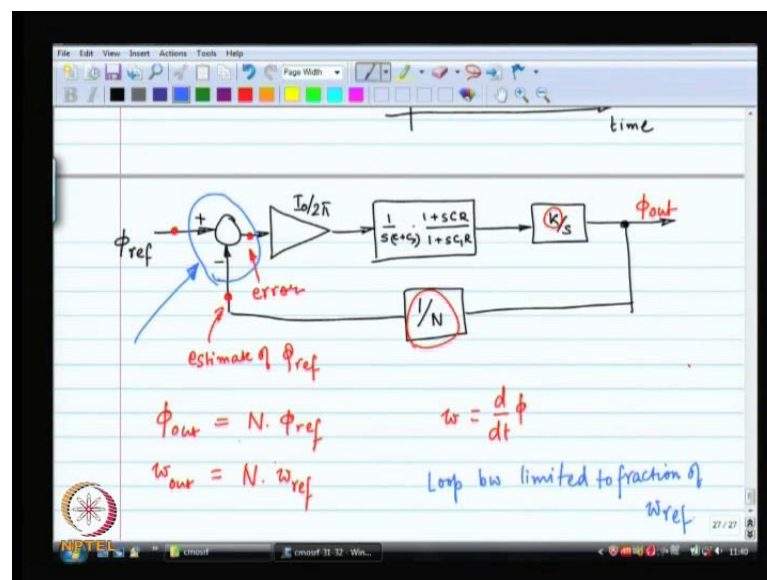 File Edit View Insert Actions Tools Help
Page Width
time
ϕref + − I₀/2π 1/s(C+C₁) · 1+sCR/1+sC₁R K/s ϕout
error
1/N
estimate of ϕref
ϕout = N. ϕref w = d/dt ϕ
wout = N. wref Loop bw limited to fraction of
wref
27/27
NPTEL cmosrf cmosrf-31-32 - Win... 11:40